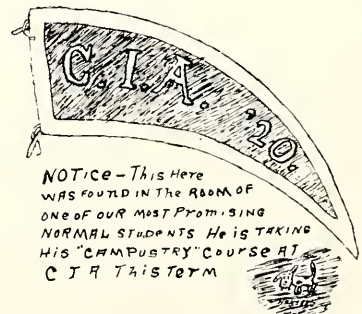 C.I.A. '20.
NOTiCe - This Here
WAS FOUND IN The ROOM OF
ONE OF OUR MOST PromiSING
NORMAL STUDENTS He is TAKING
His "CAMPUSTRY" COURSE AT
C I A This Term